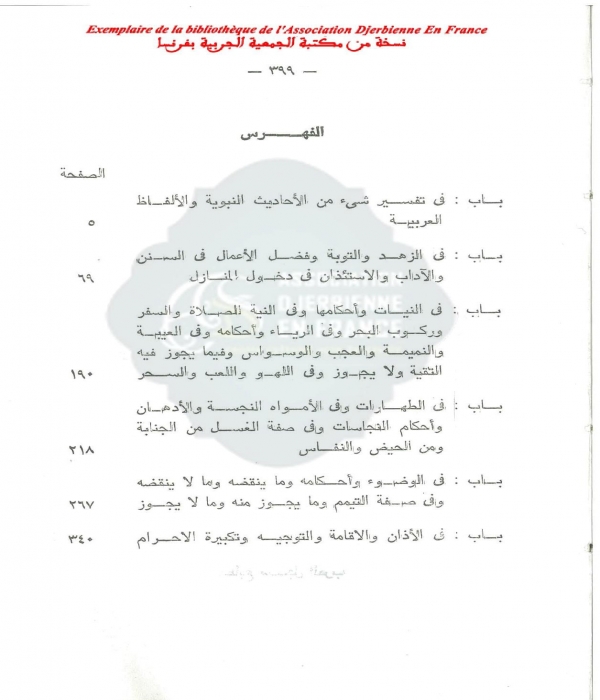 Exemplaire de la bibliothèque de l'Association Djerbienne En France
نسخة من مكتبة الجمعية الجربية بفرنسا
— ٣٩٩ —
الفهرس
الصفحة
باب : فى تفسير شىء من الأحاديث النبوية والألفاظ
العربية ٥
باب : فى الزهد والتوبة وفضل الأعمال فى السنن
والآداب والاستئذان فى دخول المنازل ٦٩
باب : فى النيات وأحكامها وفى النية للصلاة والسفر
وركوب البحر وفى الرياء وأحكامه وفى الغيبة
والنميمة والعجب والوسواس وفيما يجوز فيه
التقية ولا يجوز وفى اللهو واللعب والسحر ١٩٠
باب : فى الطهارات وفى الأمواه النجسة والأدهان
وأحكام النجاسات وفى صفة الغسل من الجنابة
ومن الحيض والنفاس ٢١٨
باب : فى الوضوء وأحكامه وما ينقضه وما لا ينقضه
وفى صفة التيمم وما يجوز منه وما لا يجوز ٢٦٧
باب : فى الأذان والاقامة والتوجيه وتكبيرة الاحرام ٣٤٠
ASSOCIATION
DJERBIENNE
EN FRANCE